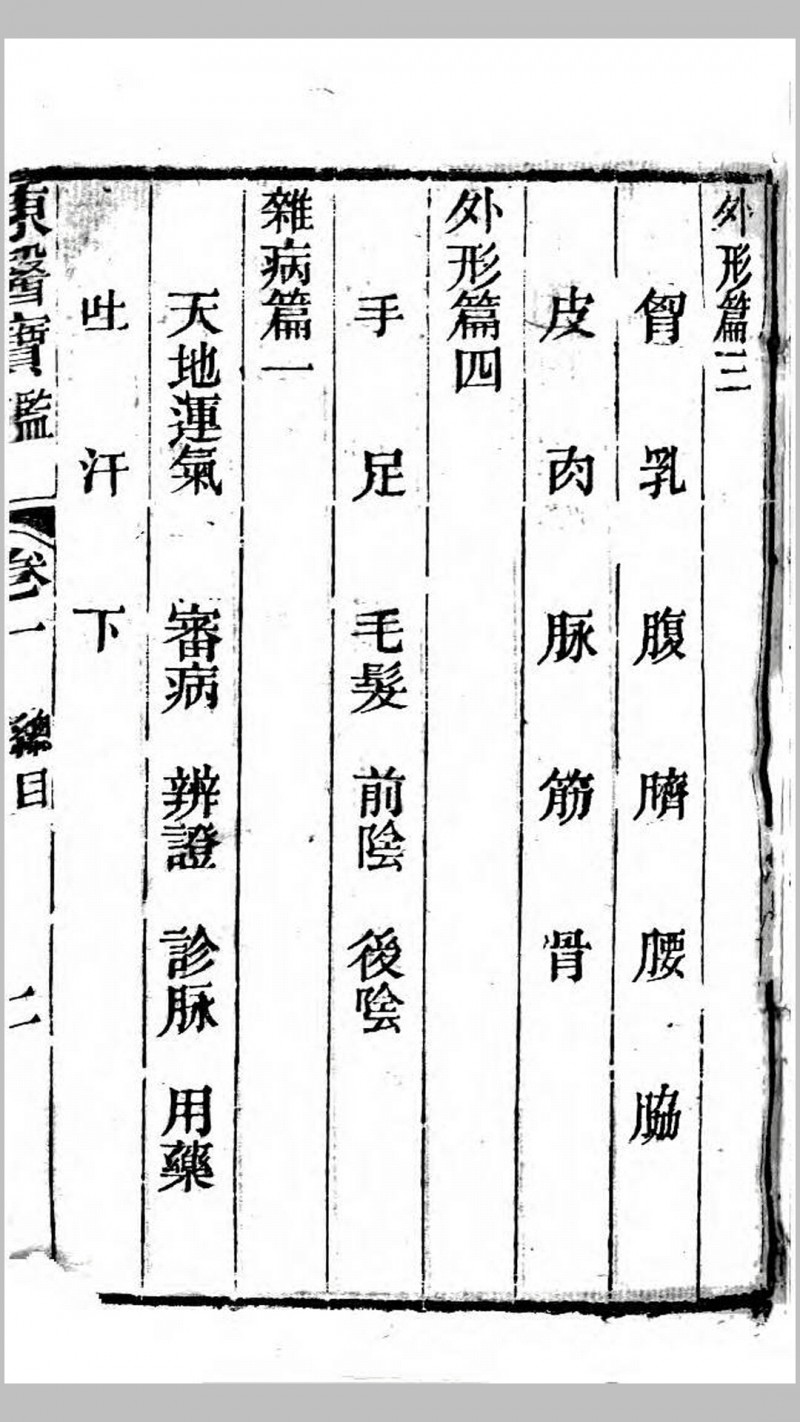 外形篇三
胷 乳 腹 臍 腰 脇
皮 肉 脉 筋 骨
外形篇四
手 足 毛髮 前陰 後陰
雜病篇一
天地運氣 審病 辨證 診脉 用藥
吐 汗 下
東醫寶鑑 卷一 總目 二